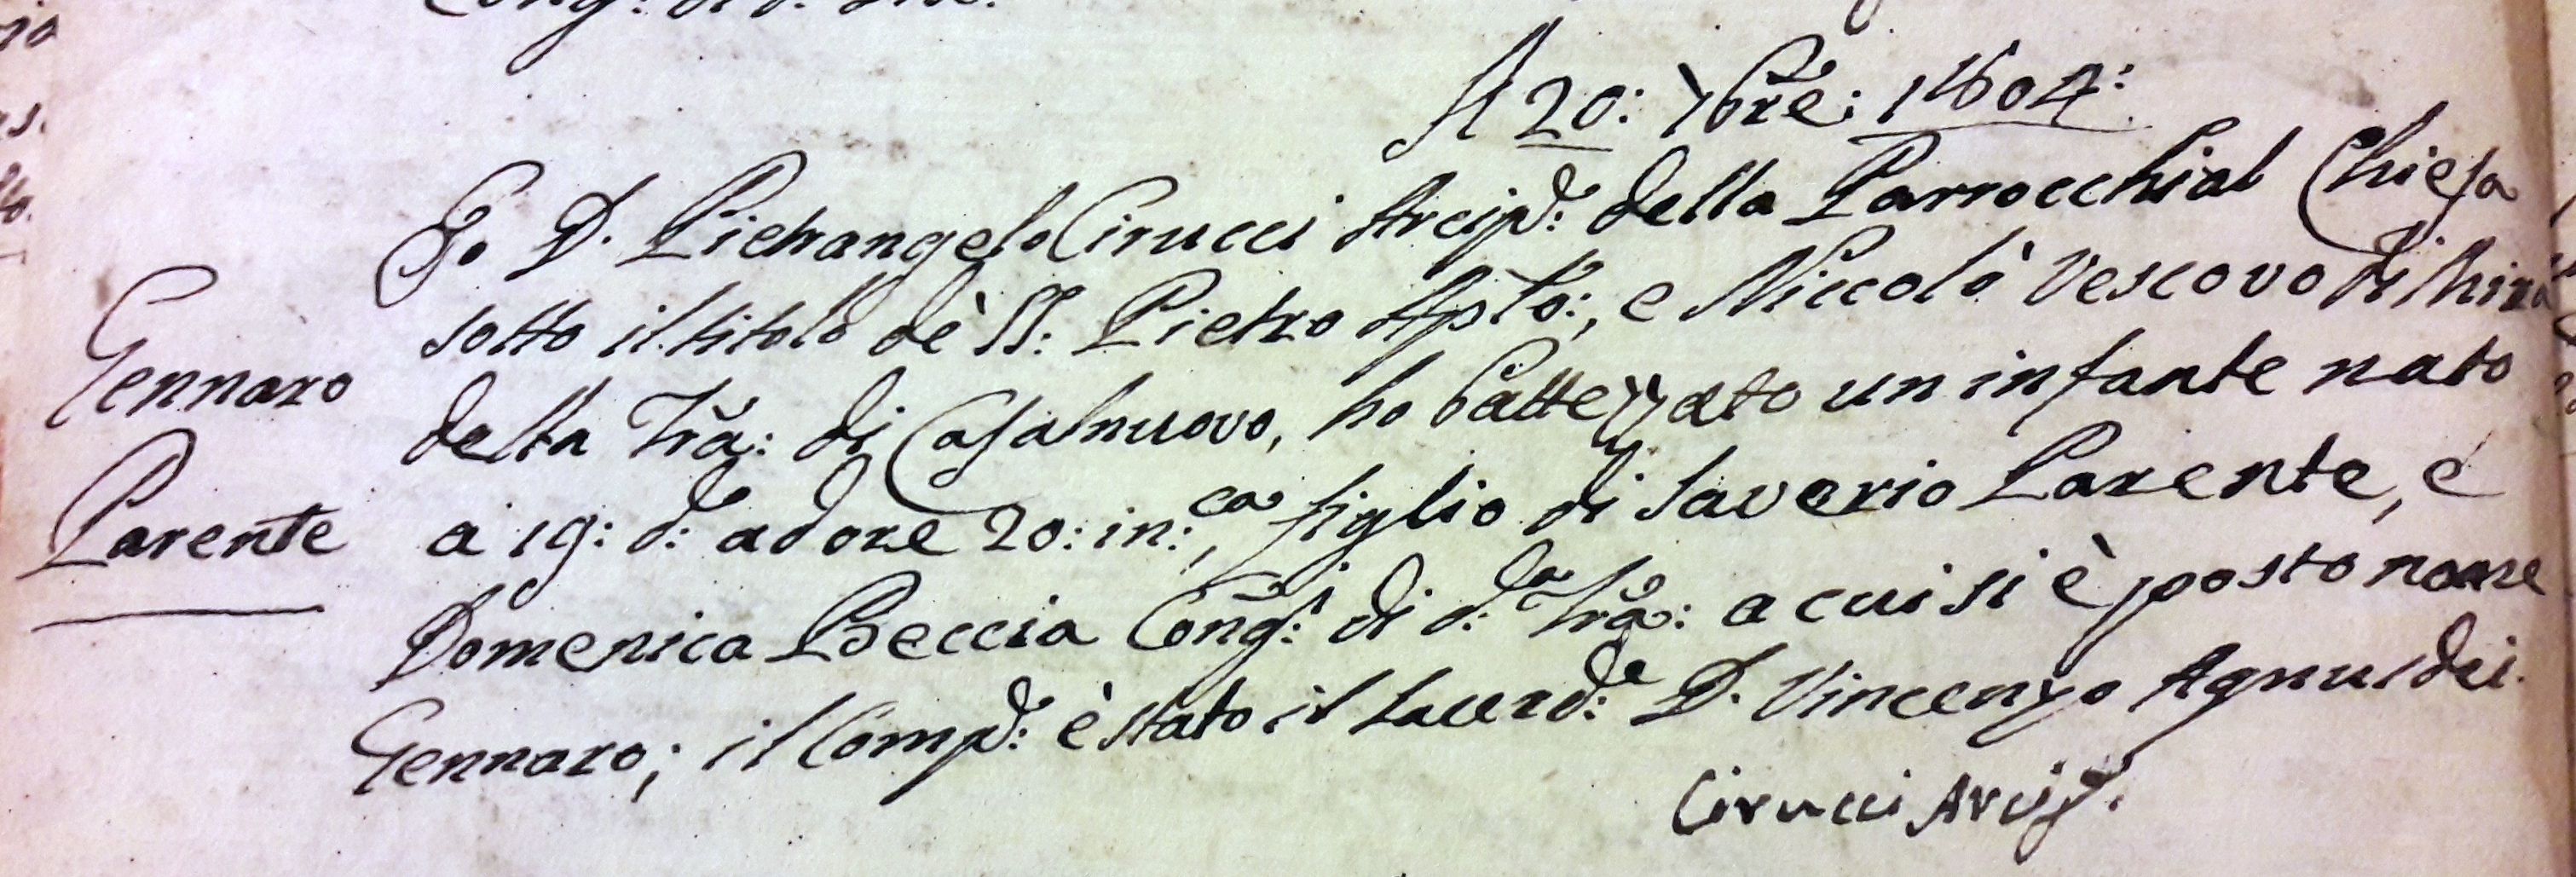 A 20: 7bre: 1804:
Io D. Pietrangelo Cirucci Arcip.: della Parrocchial Chiesa
sotto il titolo dè SS: Pietro Apto:, e Niccolò Vescovo di Mira
Gennaro
della Tra: di Casalnuovo, ho battezzato un infante nato
Parente
a 19: d: ad ore 20: in:ca, figlio di Saverio Parente, e
Domenica Beccia Cong:i di d:a Tra: a cui si è posto nome
Gennaro; il Comp.: è stato il Sacerd:e D. Vincenzo Agnusdei.
Cirucci Arcip.